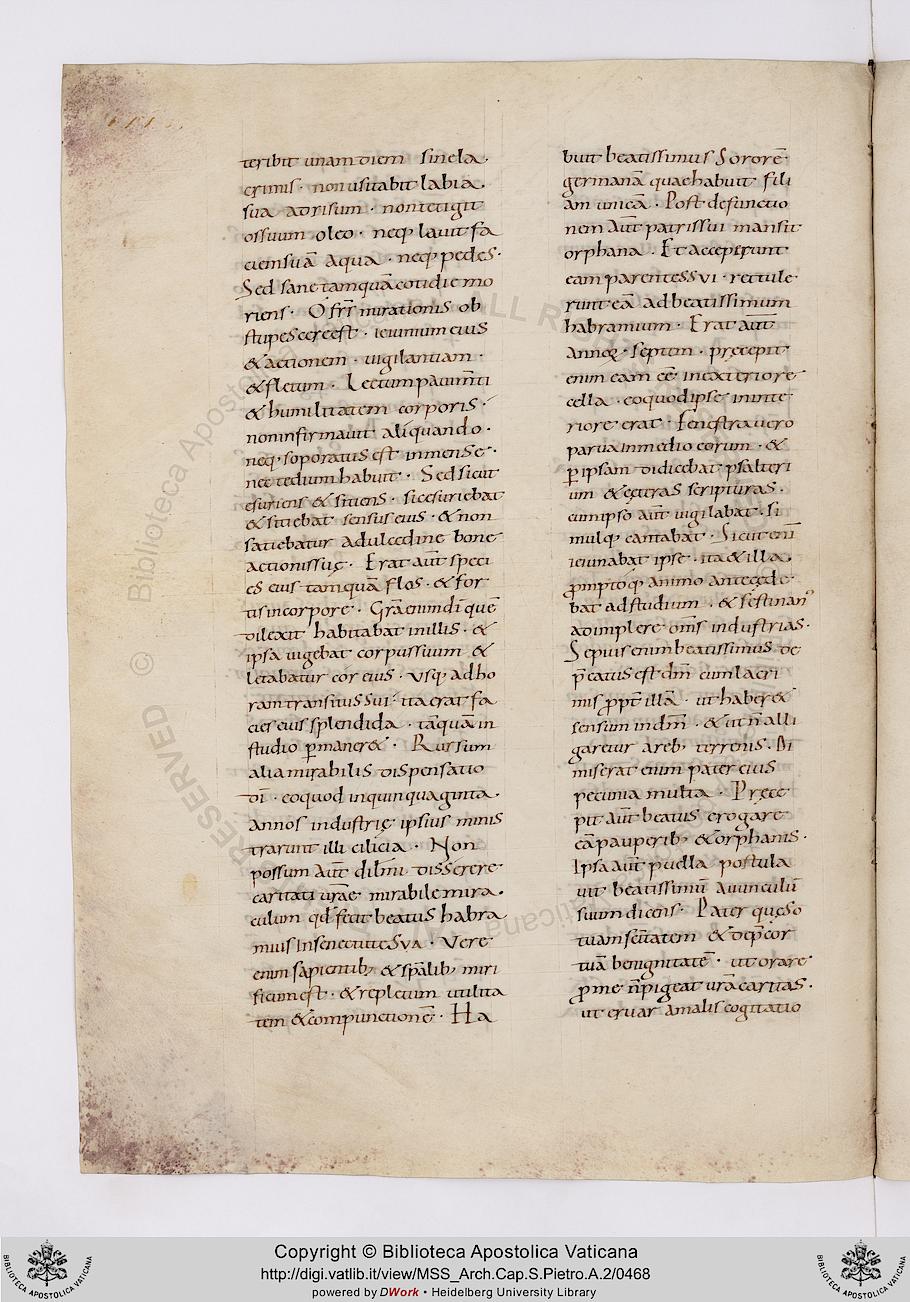 teribit unam diem sine la·
crimis · non visitabit labia·
sua ad risum · non tetigit
ossuum oleo · neq; lavit fa
ciem suā aqua · neq; pedes·
Sed sane tamquā cotidie mo
riens · O frr̄ mirationis ob
stupescere est · ieiunium eius
& actionem · vigilantiam ·
& fletum · Lectum pavim̄ti
& humilitatem corporis ·
non infirmavit aliquando ·
neq; soporatus est in mense ·
nec tedium habuit · Sed sicut
esuriens & sitiens · sic esuriebat
& sitiebat sensus eius · & non
satiebatur a dulcedine bone
actionis suę · Erat aut̄ speci
es eius tamquā flos · & for
tis in corpore · Grā enim dī quē
dilexit habitabat in illis · &
ipsa vigebat corpus suum &
letabatur cor eius · usq; ad ho
ram transitus sui · ita erat fa
cies eius splendida · tāquā in
studio p̄maner& · Rursum
alia mirabilis dispensatio
dī · eo quod in quinquaginta ·
annos industrię ipsius minis
trarunt illi cilicia · Non
possum aut̄ dibm̄i disserere
caritati vr̄ae mirabile mira·
culum qd̄ fecit beatus habra
mius In senectute Sua · Vere
enim sapientib; & sp̄alib; miri
ficum est · & repletum utilita
tem & compunctionē · Ha
buit beatissimus Sororē
germanā quae habuit fili
am unicā · Post defunctio
nem aut̄ patris sui mansit
orphana · Et acceperunt
eam parentes sui · rettule
runt eā ad beatissimum
habramium · Erat aut̄
annoꝝ septem · pręcepit
enim eam eē in exteriore
cella · eo quod ipse in inte
riore erat · Fenestra vero
parva in medio eorum · &
p̄ ipsam didicebat psalteri
um & cęteras scripturas ·
cum ipso aut̄ vigilabat · si
mulq; cantabat · Sicut eni̅
ieiunabat ipse · ita & illa·
promptoq; animo antecede
bat ad studium · & festinan
adimplere om̄s industrias·
Sepius enim beatissimus de
p̄catus est dn̄m cum lacri
mis ꝓpt̄ illā · ut haber&
sensum in dn̄m · & ut n̄ alli
garetur areb; terrenis · Di
miserat enim pater eius
pecunia multa · Pręce
pit aut̄ beatus erogare
eā pauperib; & orphanis ·
Ipsa aut̄ puella postula
vit beatissimū avunculū
suum dicens · Pater quęso
tuam sc̄itatem & dep̄cor
tuā benignitatē · ut orare
ꝓ me n̄ pigeat vr̄a caritas ·
ut eruar a malis cogitatio
Copyright © Biblioteca Apostolica Vaticana
http://digi.vatlib.it/view/MSS_Arch.Cap.S.Pietro.A.2/0468
powered by DWork • Heidelberg University Library
BIBLIOTECA APOSTOLICA VATICANA
BIBLIOTECA APOSTOLICA VATICANA